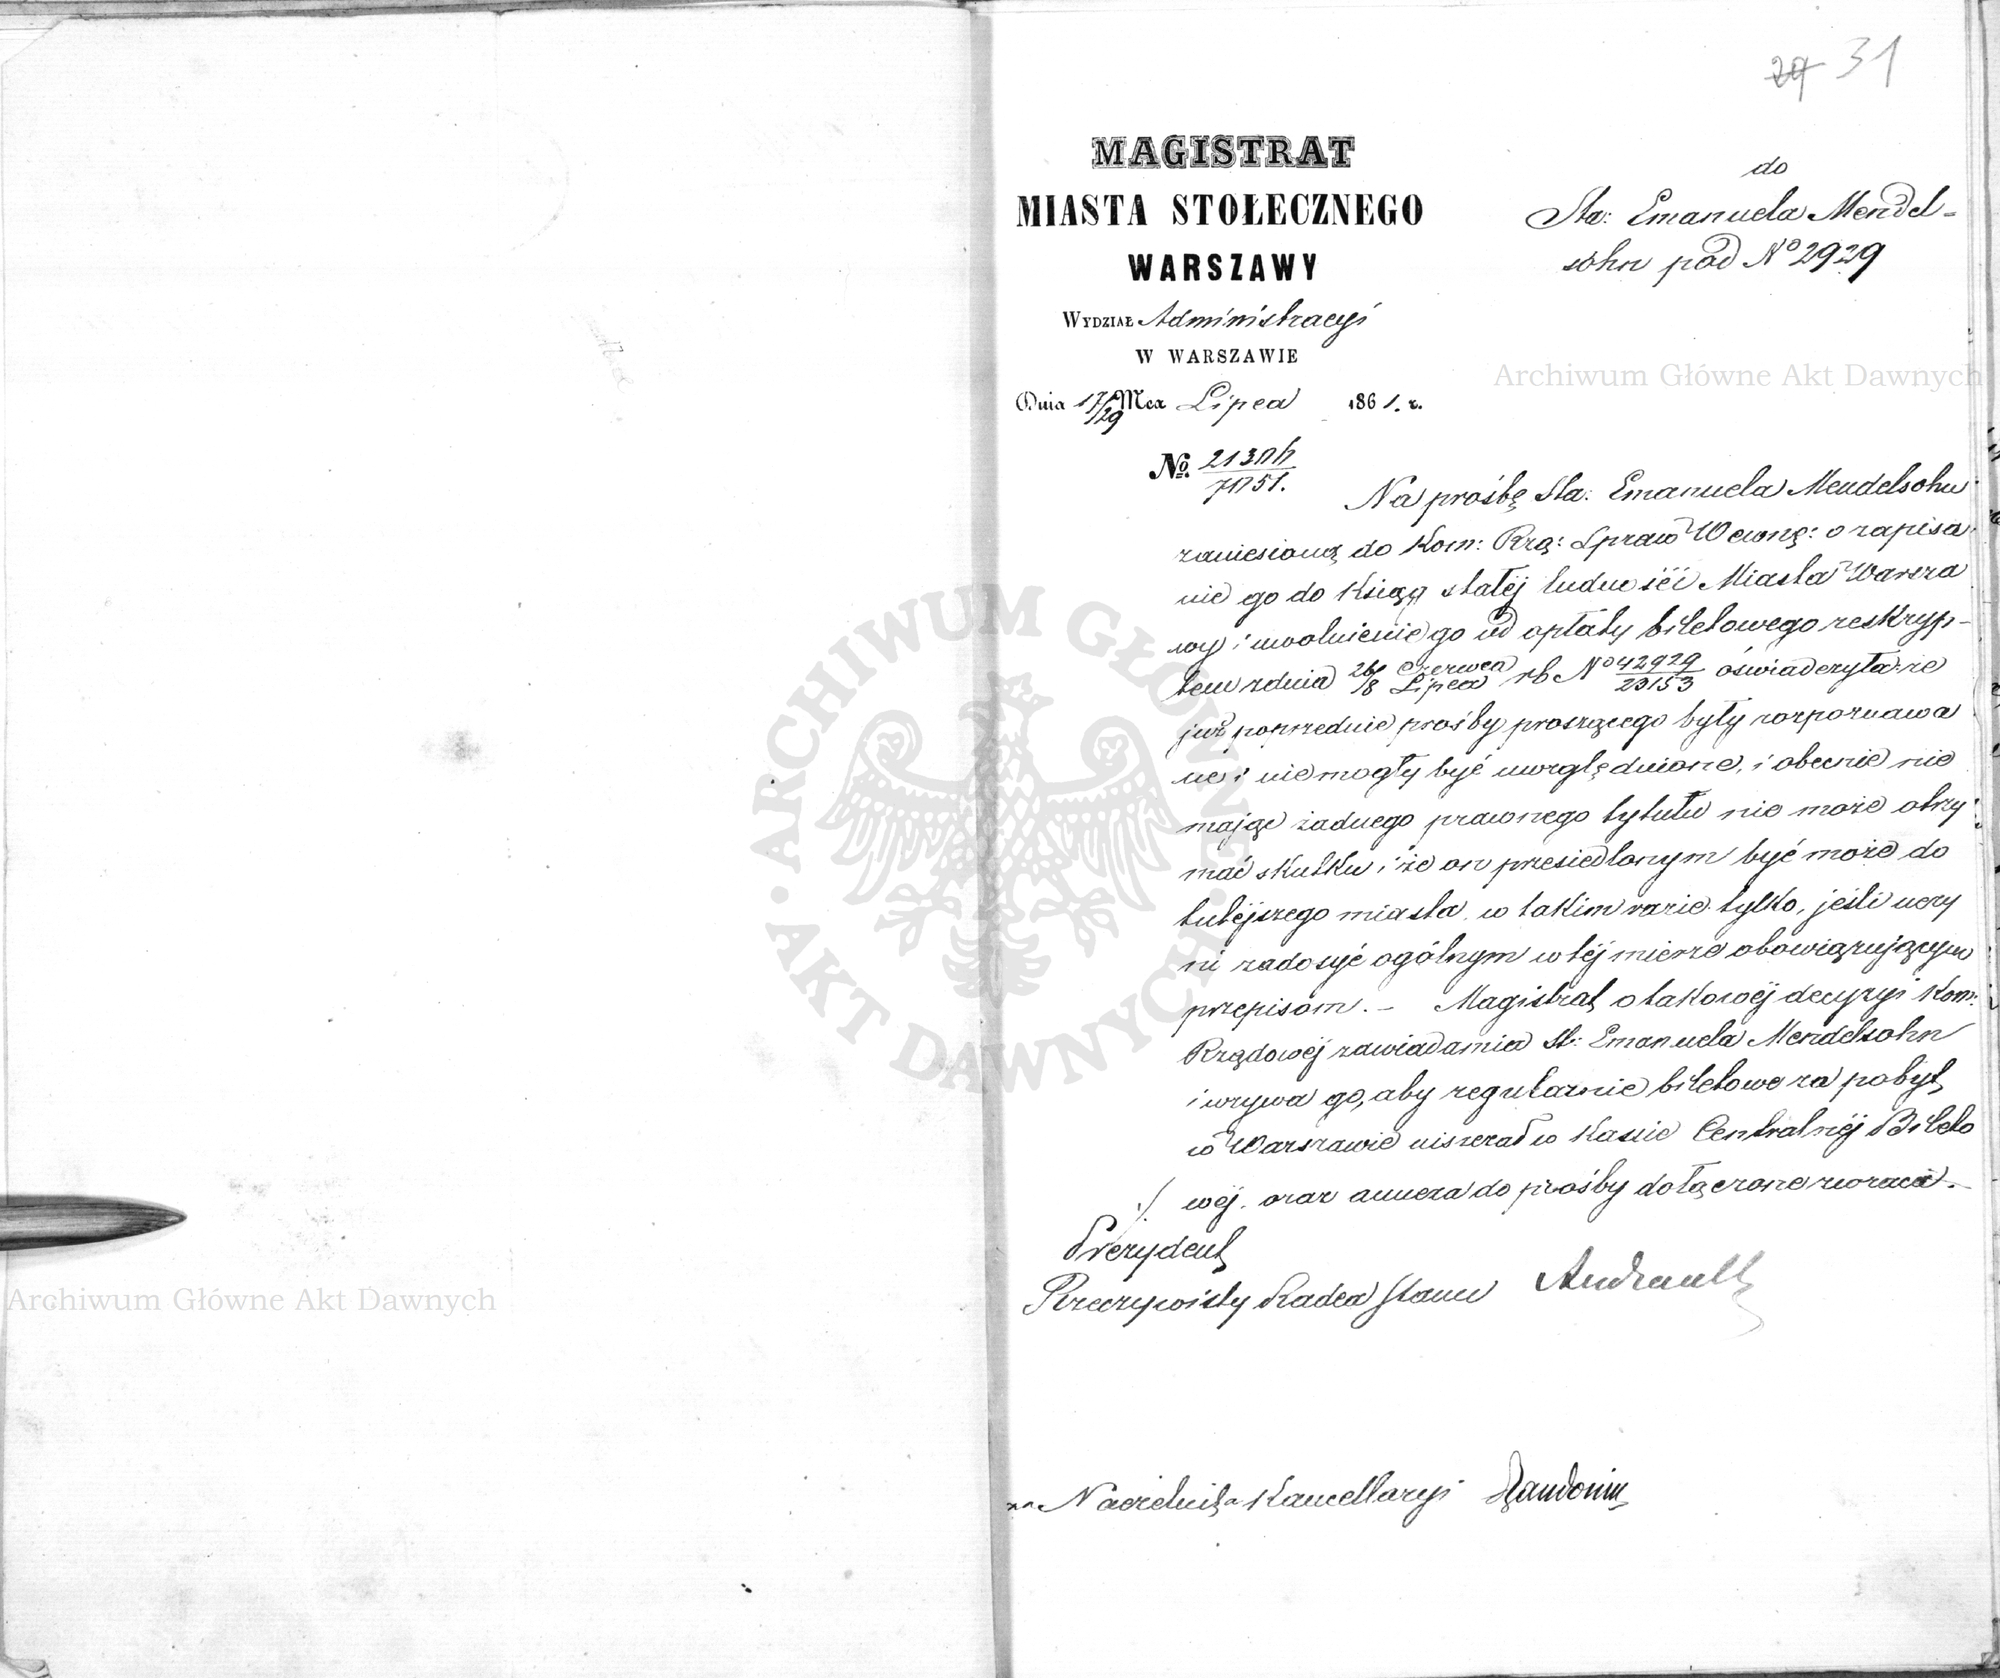 29 31
MAGISTRAT
MIASTA STOŁECZNEGO
WARSZAWY
WYDZIAŁ Administracyi
W WARSZAWIE
Dnia 17/29 Mca Lipca 1861. r.
No.
do
Sta: Emanuela Mendel=
sohn pod No 2929
Na prośbę Sta: Emanuela Mendelsohn
zaniesioną do Kom: Rzą: Spraw Wewnę: o zapisa
nie go do Ksiąg stałéj ludności Miasta Warsza
wy i uwolnienie go od opłaty biletowego reskryp-
tem z dnia 26 Czerwca/8 Lipca rb No 42929/23153 oświadczyła: że
już poprzednie prośby proszącego były rozpoznawa
ne i nie mogły być uwzględnione, i obecnie nie
mając żadnego prawnego tytułu nie może otrzy
mać skutku i że on przesiedlonym być może do
tutéjszego miasta w takim razie tylko, jeśli uczy
ni zadosyć ogólnym w téj mierze obowiązującym
przepisom. - Magistrat o takowéj decyzyi Kom:
Rządowéj zawiadamia St: Emanuela Mendelsohn
i wzywa go, aby regularnie biletowe za pobyt
w Warszawie uiszczał w Kassie Centralnéj Bileto
wéj. oraz annexa do prośby dołączone zwraca. -
Prezydent
Rzeczywisty Radca Stanu Andrault
za Naczelnika Kancellaryi
Archiwum Główne Akt Dawnych
Archiwum Główne Akt Dawnych
ARCHIWUM GŁÓWNE · AKT DAWNYCH ·